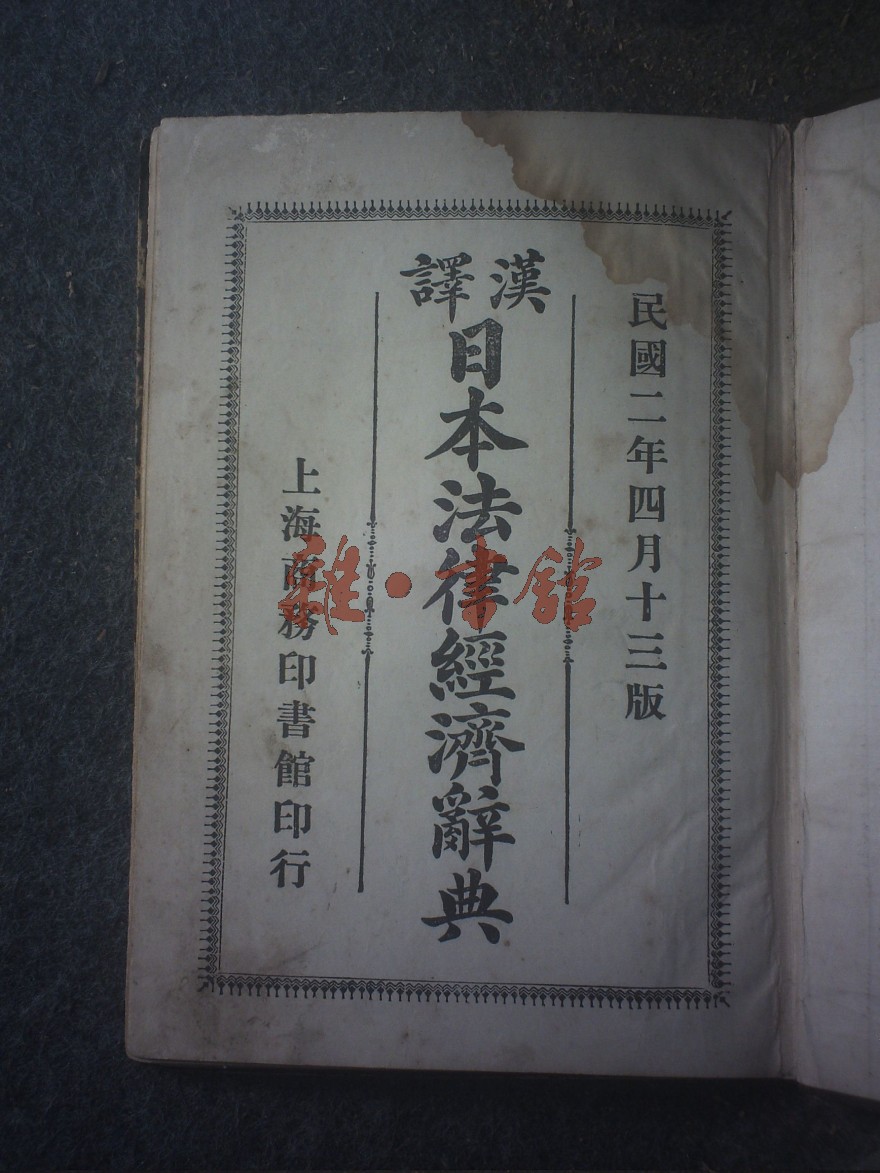 民國二年四月十三版
漢譯
日本法律經濟辭典
上海商務印書館印行
雜·書館